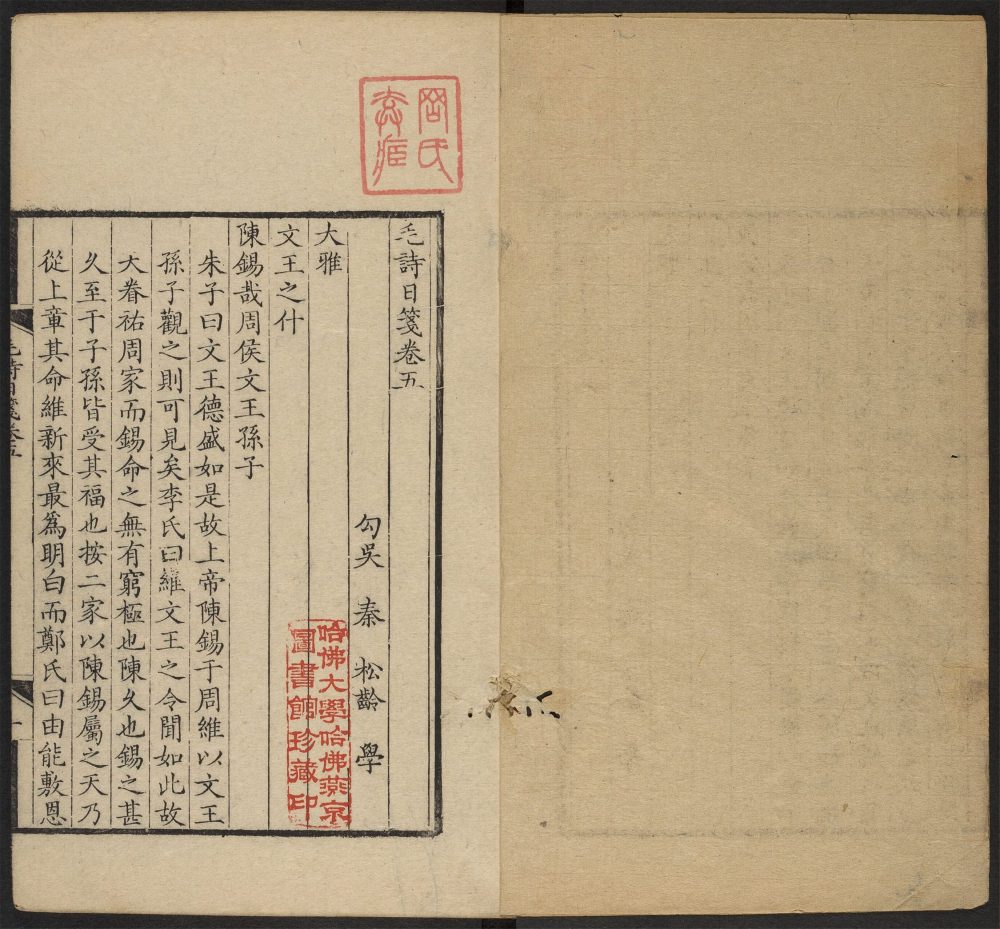 毛詩日箋卷五
勾吳 秦 松齡 學
大雅
文王之什
陳錫哉周侯文王孫子
朱子曰文王德盛如是故上帝陳錫于周維以文王
孫子觀之則可見矣李氏曰維文王之令聞如此故
天眷祐周家而錫命之無有窮極也陳久也錫之甚
久至于子孫皆受其福也按二家以陳錫屬之天乃
從上章其命維新來最爲明白而鄭氏曰由能敷恩
毛詩日箋卷五
哈佛大學哈佛燕京
圖書館珍藏印